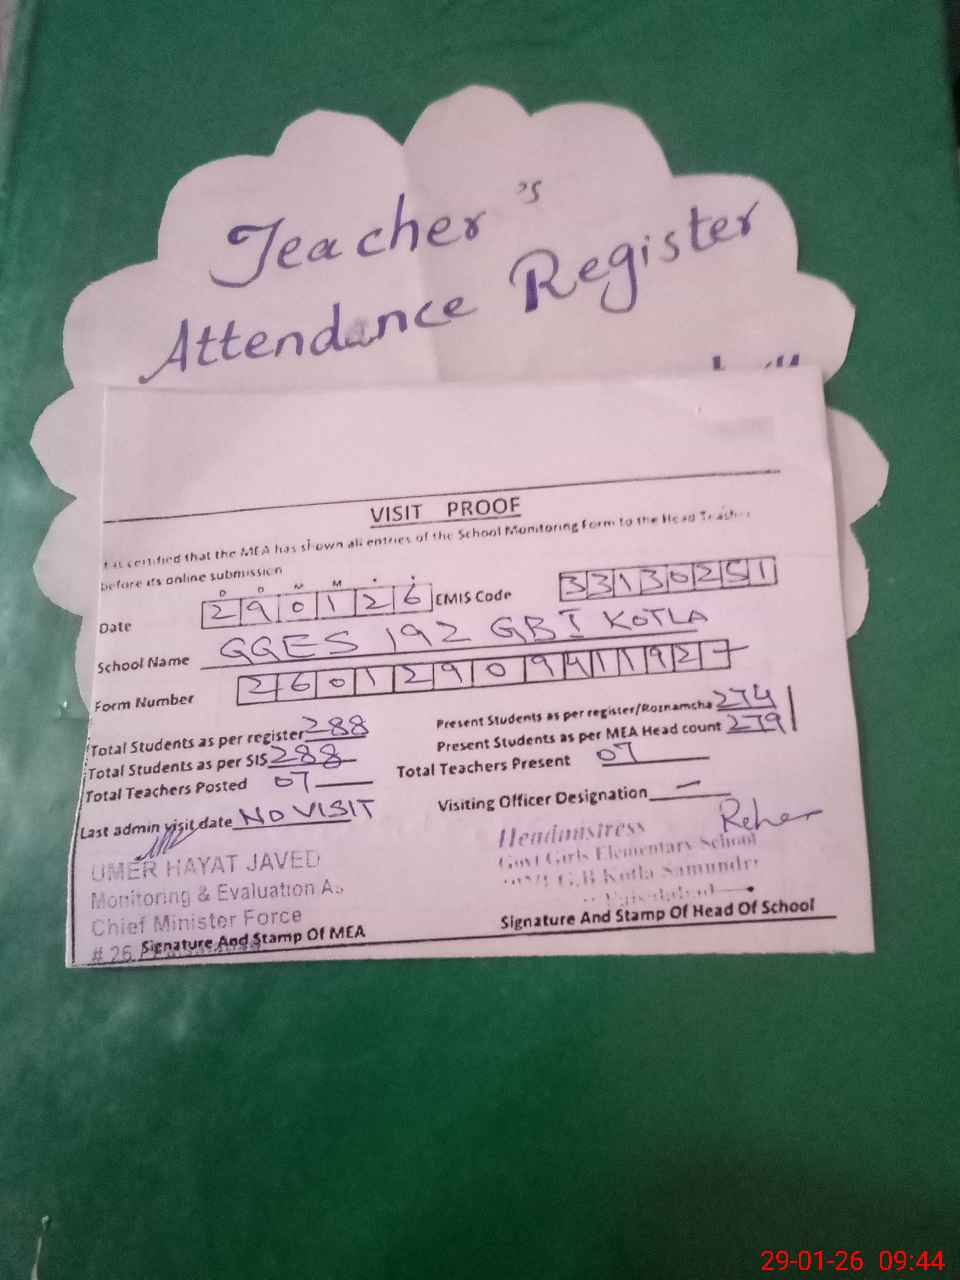 Teacher's
Attendance Register
VISIT PROOF
certified that the MEA has shown all entries of the School Monitoring Form to the Head Teacher
before its online submission
D D M M
Date 290126 EMIS Code 33130251
School Name GGES 192 GBI KOTLA
Form Number 2601290941192
Total Students as per register 288 Present Students as per register/Roznamcha 274
Total Students as per SIS 288 Present Students as per MEA Head count 279
Total Teachers Posted 07 Total Teachers Present 07
Last admin visit date NO VISIT Visiting Officer Designation —
UMER HAYAT JAVED
Monitoring & Evaluation As
Chief Minister Force
# 26
Signature And Stamp Of MEA
Headmistress
Govt Girls Elementary School
G.B Kotla Samundri
Signature And Stamp Of Head Of School
29-01-26 09:44